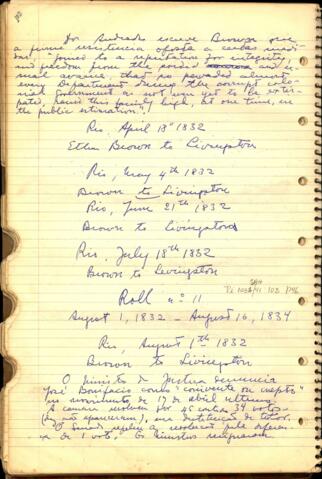 Dos Andradas escreve Brown que
a firme resistencia oposta a ambas
"joined to a reputation for integrity,
and freedom from the sordid and
avarice, that so pervaded almost
every Department during the corrupt colo-
nial Government as not even yet to be extir-
pated, raised this family high, at one time, in
the public estimation".
Rio, April 18th 1832
Ethan Brown to Livingston
Rio, May 4th 1832
Brown to Livingston
Rio, June 21th 1832
Brown to Livingston
Rio, July 18th 1832
Brown to Livingston
Roll nº 11
August 1, 1832 — August 16, 1834
Rio, August 1th 1832
Brown to Livingston
O ministro da Justiça denuncia
José Bonifacio como "conivente ou inepto"
no movimento de 17 de abril ultimo.
A camara resolveu por 45 contra 34 votos
sua destituição de tutor.
O Senado rejeitou a resolução pela diferen-
ça de 1 voto. Os ministros resignaram